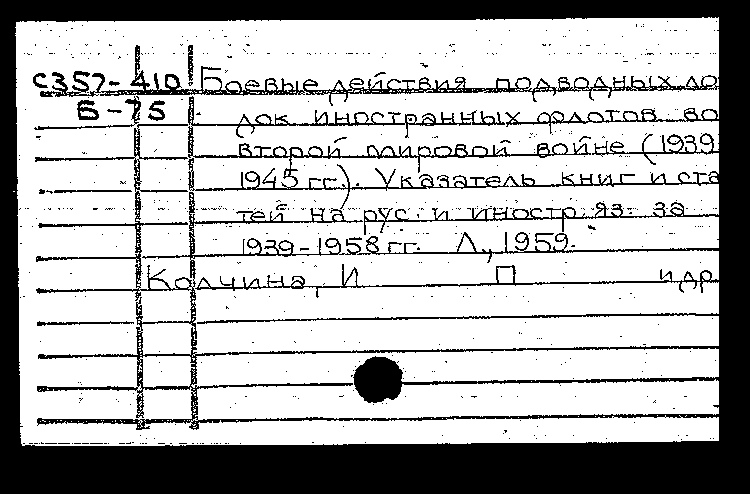 С357-410 Боевые действия подводных ло-
Б-75 док иностранных флотов во
второй мировой войне (1939
1945 гг.). Указатель книг и ста
тей на рус. и иностр. яз. за
1939-1958 гг. Л., 1959.
Колчина, И П и др